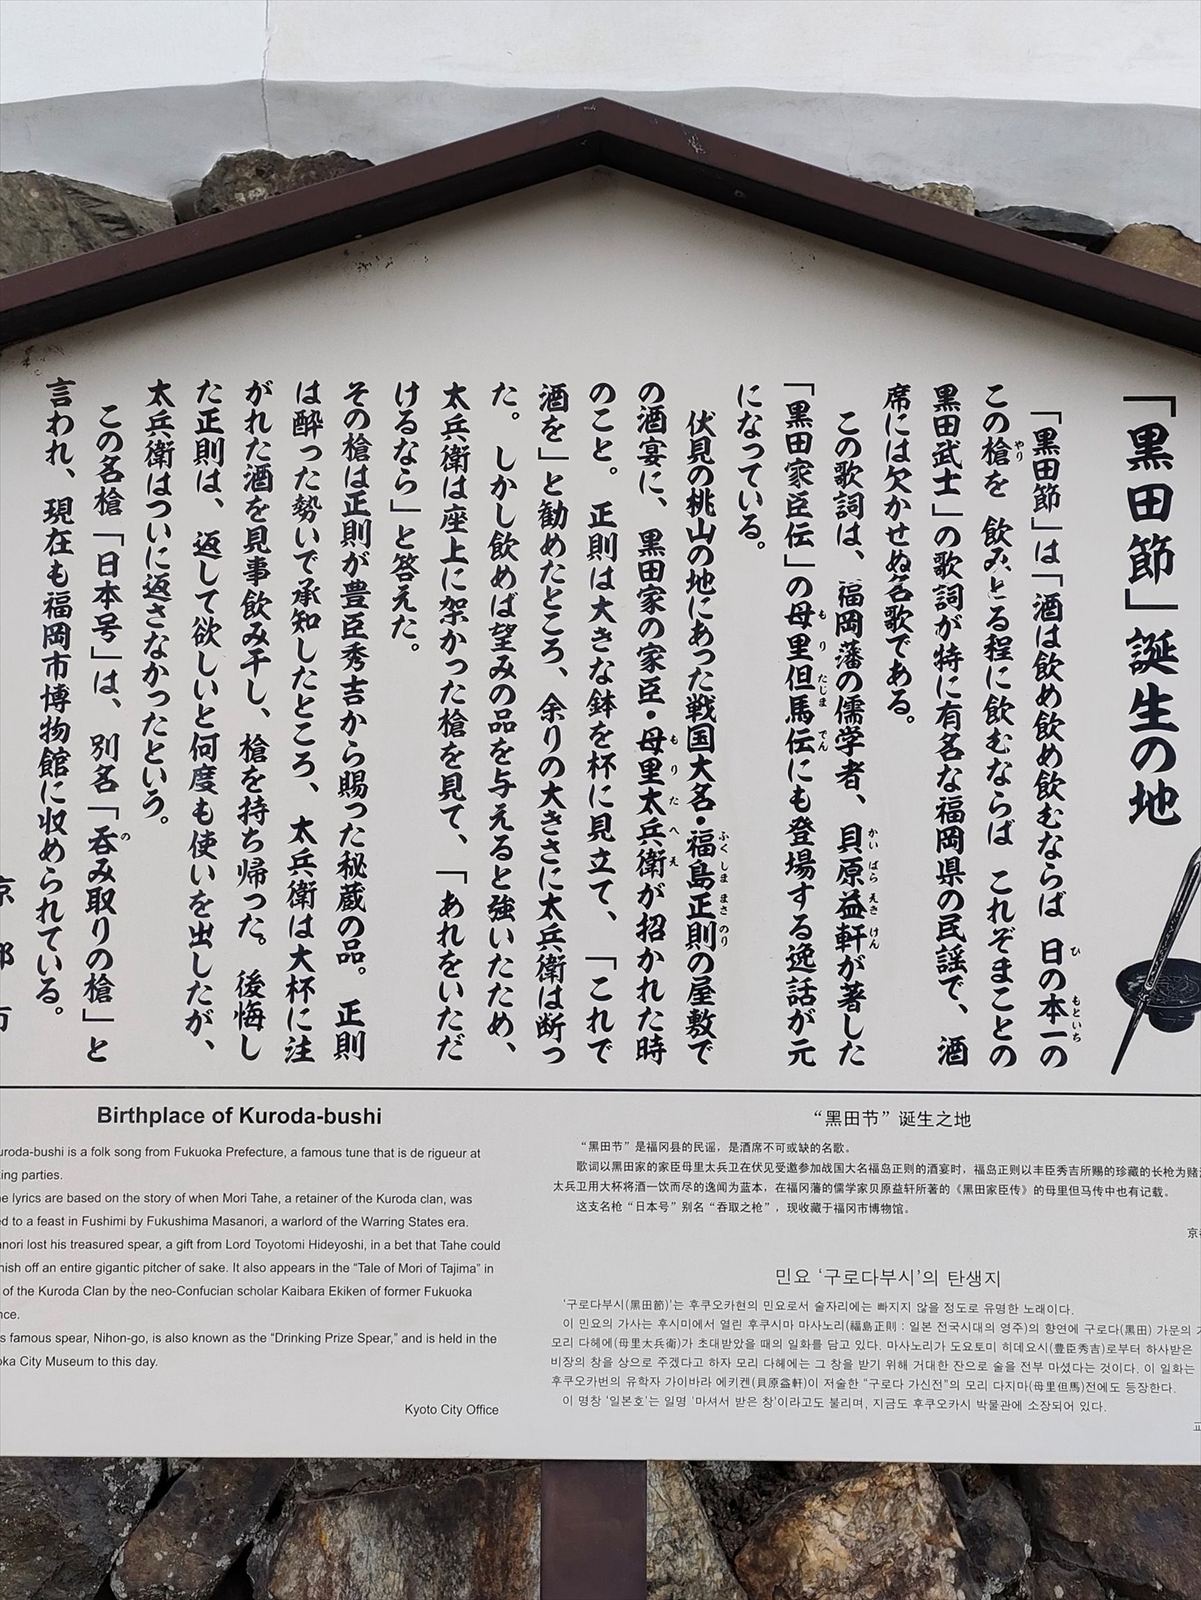 「黒田節」誕生の地
「黒田節」は「酒は飲め飲め飲むならば 日の本一の
この槍を 飲みとる程に飲むならば これぞまことの
黒田武士」の歌詞が特に有名な福岡県の民謡で、酒
席には欠かせぬ名歌である。
この歌詞は、福岡藩の儒学者、貝原益軒が著した
「黒田家臣伝」の母里但馬伝にも登場する逸話が元
になっている。
伏見の桃山の地にあった戦国大名・福島正則の屋敷で
の酒宴に、黒田家の家臣・母里太兵衛が招かれた時
のこと。正則は大きな鉢を杯に見立て、「これで
酒を」と勧めたところ、余りの大きさに太兵衛は断っ
た。しかし飲めば望みの品を与えると強いたため、
太兵衛は座上に架かった槍を見て、「あれをいただ
けるなら」と答えた。
その槍は正則が豊臣秀吉から賜った秘蔵の品。正則
は酔った勢いで承知したところ、太兵衛は大杯に注
がれた酒を見事飲み干し、槍を持ち帰った。後悔し
た正則は、返して欲しいと何度も使いを出したが、
太兵衛はついに返さなかったという。
この名槍「日本号」は、別名「呑み取りの槍」と
言われ、現在も福岡市博物館に収められている。
京都市
Birthplace of Kuroda-bushi
uroda-bushi is a folk song from Fukuoka Prefecture, a famous tune that is de rigueur at
king parties.
e lyrics are based on the story of when Mori Tahe, a retainer of the Kuroda clan, was
ed to a feast in Fushimi by Fukushima Masanori, a warlord of the Warring States era.
nori lost his treasured spear, a gift from Lord Toyotomi Hideyoshi, in a bet that Tahe could
nish off an entire gigantic pitcher of sake. It also appears in the “Tale of Mori of Tajima” in
of the Kuroda Clan by the neo-Confucian scholar Kaibara Ekiken of former Fukuoka
nce.
s famous spear, Nihon-go, is also known as the “Drinking Prize Spear,” and is held in the
oka City Museum to this day.
Kyoto City Office
“黑田节”诞生之地
“黑田节”是福冈县的民谣，是酒席不可或缺的名歌。
歌词以黑田家的家臣母里太兵卫在伏见受邀参加战国大名福岛正则的酒宴时，福岛正则以丰臣秀吉所赐的珍藏的长枪为赌
太兵卫用大杯将酒一饮而尽的逸闻为蓝本，在福冈藩的儒学家贝原益轩所著的《黑田家臣传》的母里但马传中也有记载。
这支名枪“日本号”别名“吞取之枪”，现收藏于福冈市博物馆。
京
민요 ‘구로다부시’의 탄생지
‘구로다부시(黑田節)’는 후쿠오카현의 민요로서 술자리에는 빠지지 않을 정도로 유명한 노래이다.
이 민요의 가사는 후시미에서 열린 후쿠시마 마사노리(福島正則 : 일본 전국시대의 영주)의 향연에 구로다(黑田) 가문의
모리 다헤에(母里太兵衛)가 초대받았을 때의 일화를 담고 있다. 마사노리가 도요토미 히데요시(豊臣秀吉)로부터 하사받은
비장의 창을 상으로 주겠다고 하자 모리 다헤에는 그 창을 받기 위해 거대한 잔으로 술을 전부 마셨다는 것이다. 이 일화는
후쿠오카번의 유학자 가이바라 에키켄(貝原益軒)이 저술한 “구로다 가신전”의 모리 다지마(母里但馬)전에도 등장한다.
이 명창 ‘일본호’는 일명 ‘마셔서 받은 창’이라고도 불리며, 지금도 후쿠오카시 박물관에 소장되어 있다.
교